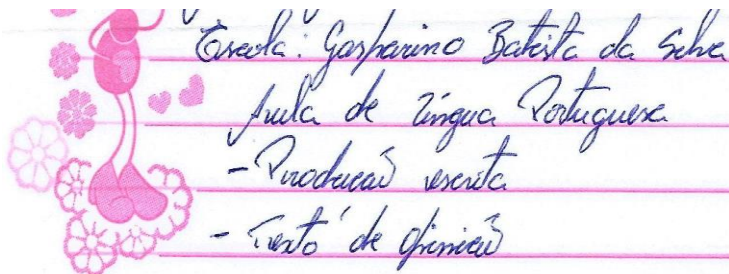 Escola: Gasparino Batista da Selva
Aula de Língua Portuguesa
- Producão escrita
- Texto de opinião